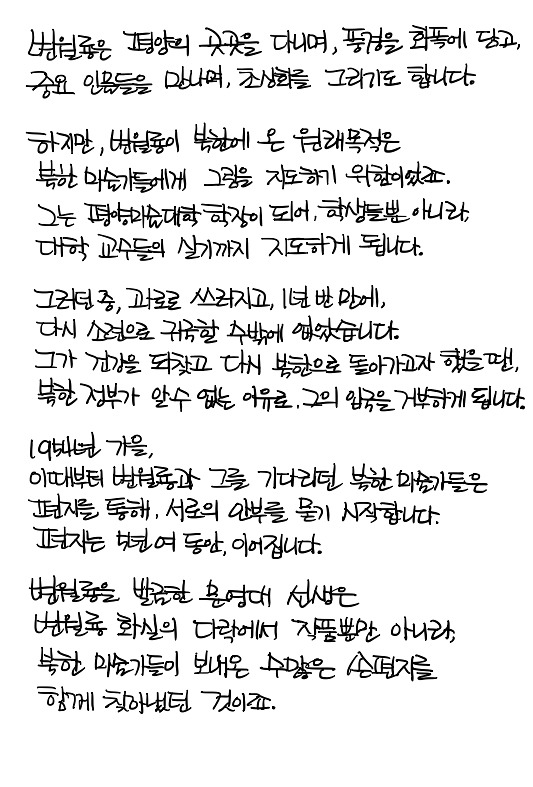 변월룡은 평양의 곳곳을 다니며, 풍경을 화폭에 담고,
중요 인물들을 만나며, 초상화를 그리기도 합니다.
하지만, 변월룡이 북한에 온 원래목적은
북한 미술가들에게 그림을 지도하기 위함이었죠.
그는 평양미술대학 학장이 되어, 학생들뿐 아니라,
대학 교수들의 실기까지 지도하게 됩니다.
그러던 중, 과로로 쓰러지고, 1년 반 만에,
다시 소련으로 귀국할 수밖에 없었습니다.
그가 건강을 되찾고 다시 북한으로 돌아가고자 했을 땐,
북한 정부가 알 수 없는 이유로, 그의 입국을 거부하게 됩니다.
1954년 가을,
이때부터 변월룡과 그를 기다리던 북한 미술가들은
편지를 통해, 서로의 안부를 묻기 시작합니다.
편지는 5년여 동안, 이어집니다.
변월룡을 발굴한 문영대 선생은
변월룡 화실의 다락에서 작품뿐만 아니라,
북한 미술가들이 보내온 수많은 손편지를
함께 찾아냈던 것이죠.